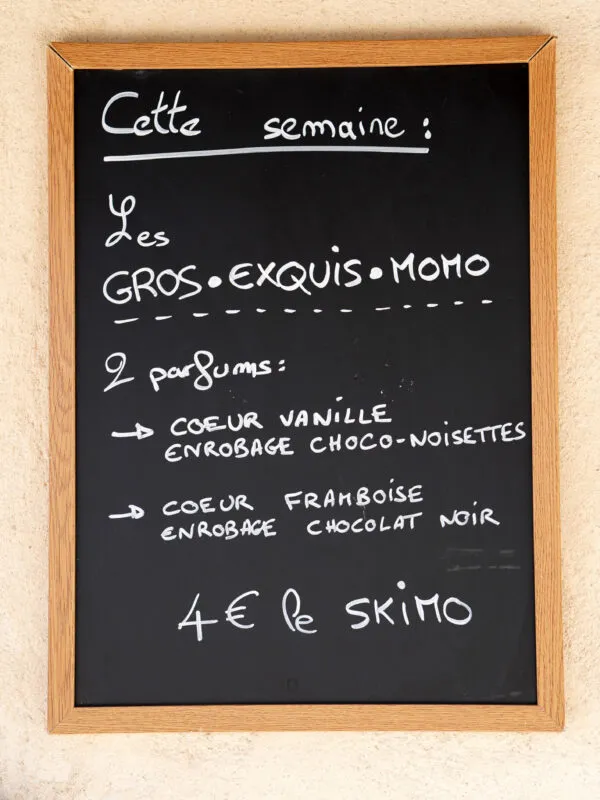 Cette semaine :
Les
GROS • EXQUIS • MOMO
2 parfums :
→ COEUR VANILLE
ENROBAGE CHOCO-NOISETTES
→ COEUR FRAMBOISE
ENROBAGE CHOCOLAT NOIR
4€ le SKIMO